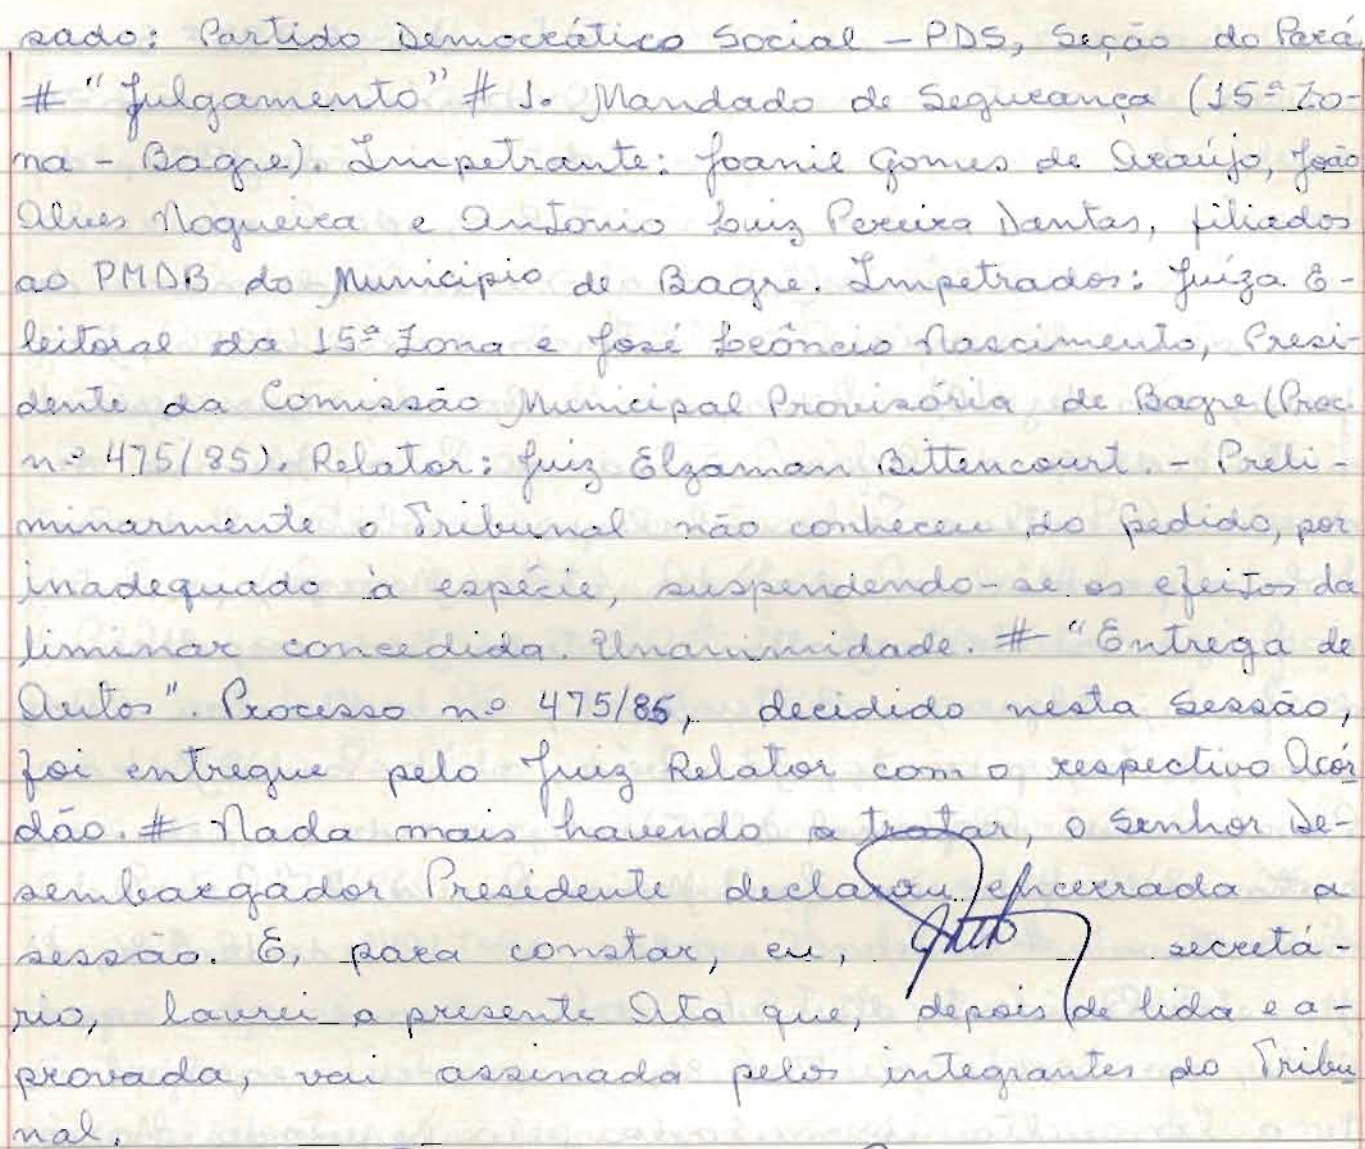 sado: Partido Democrático Social - PDS, Seção do Pará,
# "Julgamento" # 1. Mandado de Segurança (15ª Zo-
na - Bagre). Impetrante: Joanil Gomes de Araújo, João
Alves Nogueira e Antonio Luiz Pereira Dantas, filiados
ao PMDB do Município de Bagre. Impetrados: Juíza E-
leitoral da 15ª Zona e José Leôncio Nascimento, Presi-
dente da Comissão Municipal Provisória de Bagre (Proc.
nº 475/85). Relator: Juiz Elzaman Bittencourt. - Preli-
minarmente o Tribunal não conheceu do pedido, por
inadequado à espécie, suspendendo-se os efeitos da
liminar concedida. Unanimidade. # "Entrega de
Autos". Processo nº 475/85, decidido nesta Sessão,
foi entregue pelo Juiz Relator com o respectivo Acór
dão. # Nada mais havendo a tratar, o Senhor De-
sembargador Presidente declarou encerrada a
sessão. E, para constar, eu, secretá-
rio, lavrei a presente Ata que, depois de lida e a-
provada, vai assinada pelos integrantes do Tribu
nal.